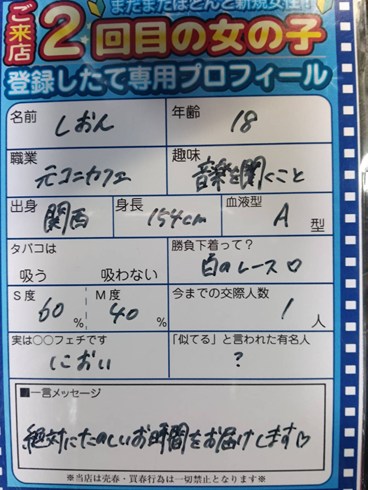 まだまだほとんど新規女性!!
ご来店2回目の女の子
登録したて専用プロフィール
名前 しおん 年齢 18
職業 元コンカフェ 趣味 音楽を聞くこと
出身 関西 身長 154cm 血液型 A 型
タバコは 吸う 吸わない 勝負下着って? 白のレース♡
S度 60 % M度 40 % 今までの交際人数 1 人
実は○○フェチです におい 「似てる」と言われた有名人 ?
■一言メッセージ
絶対にたのしいお時間をお届けします♡
※当店は売春・買春行為は一切禁止となります※